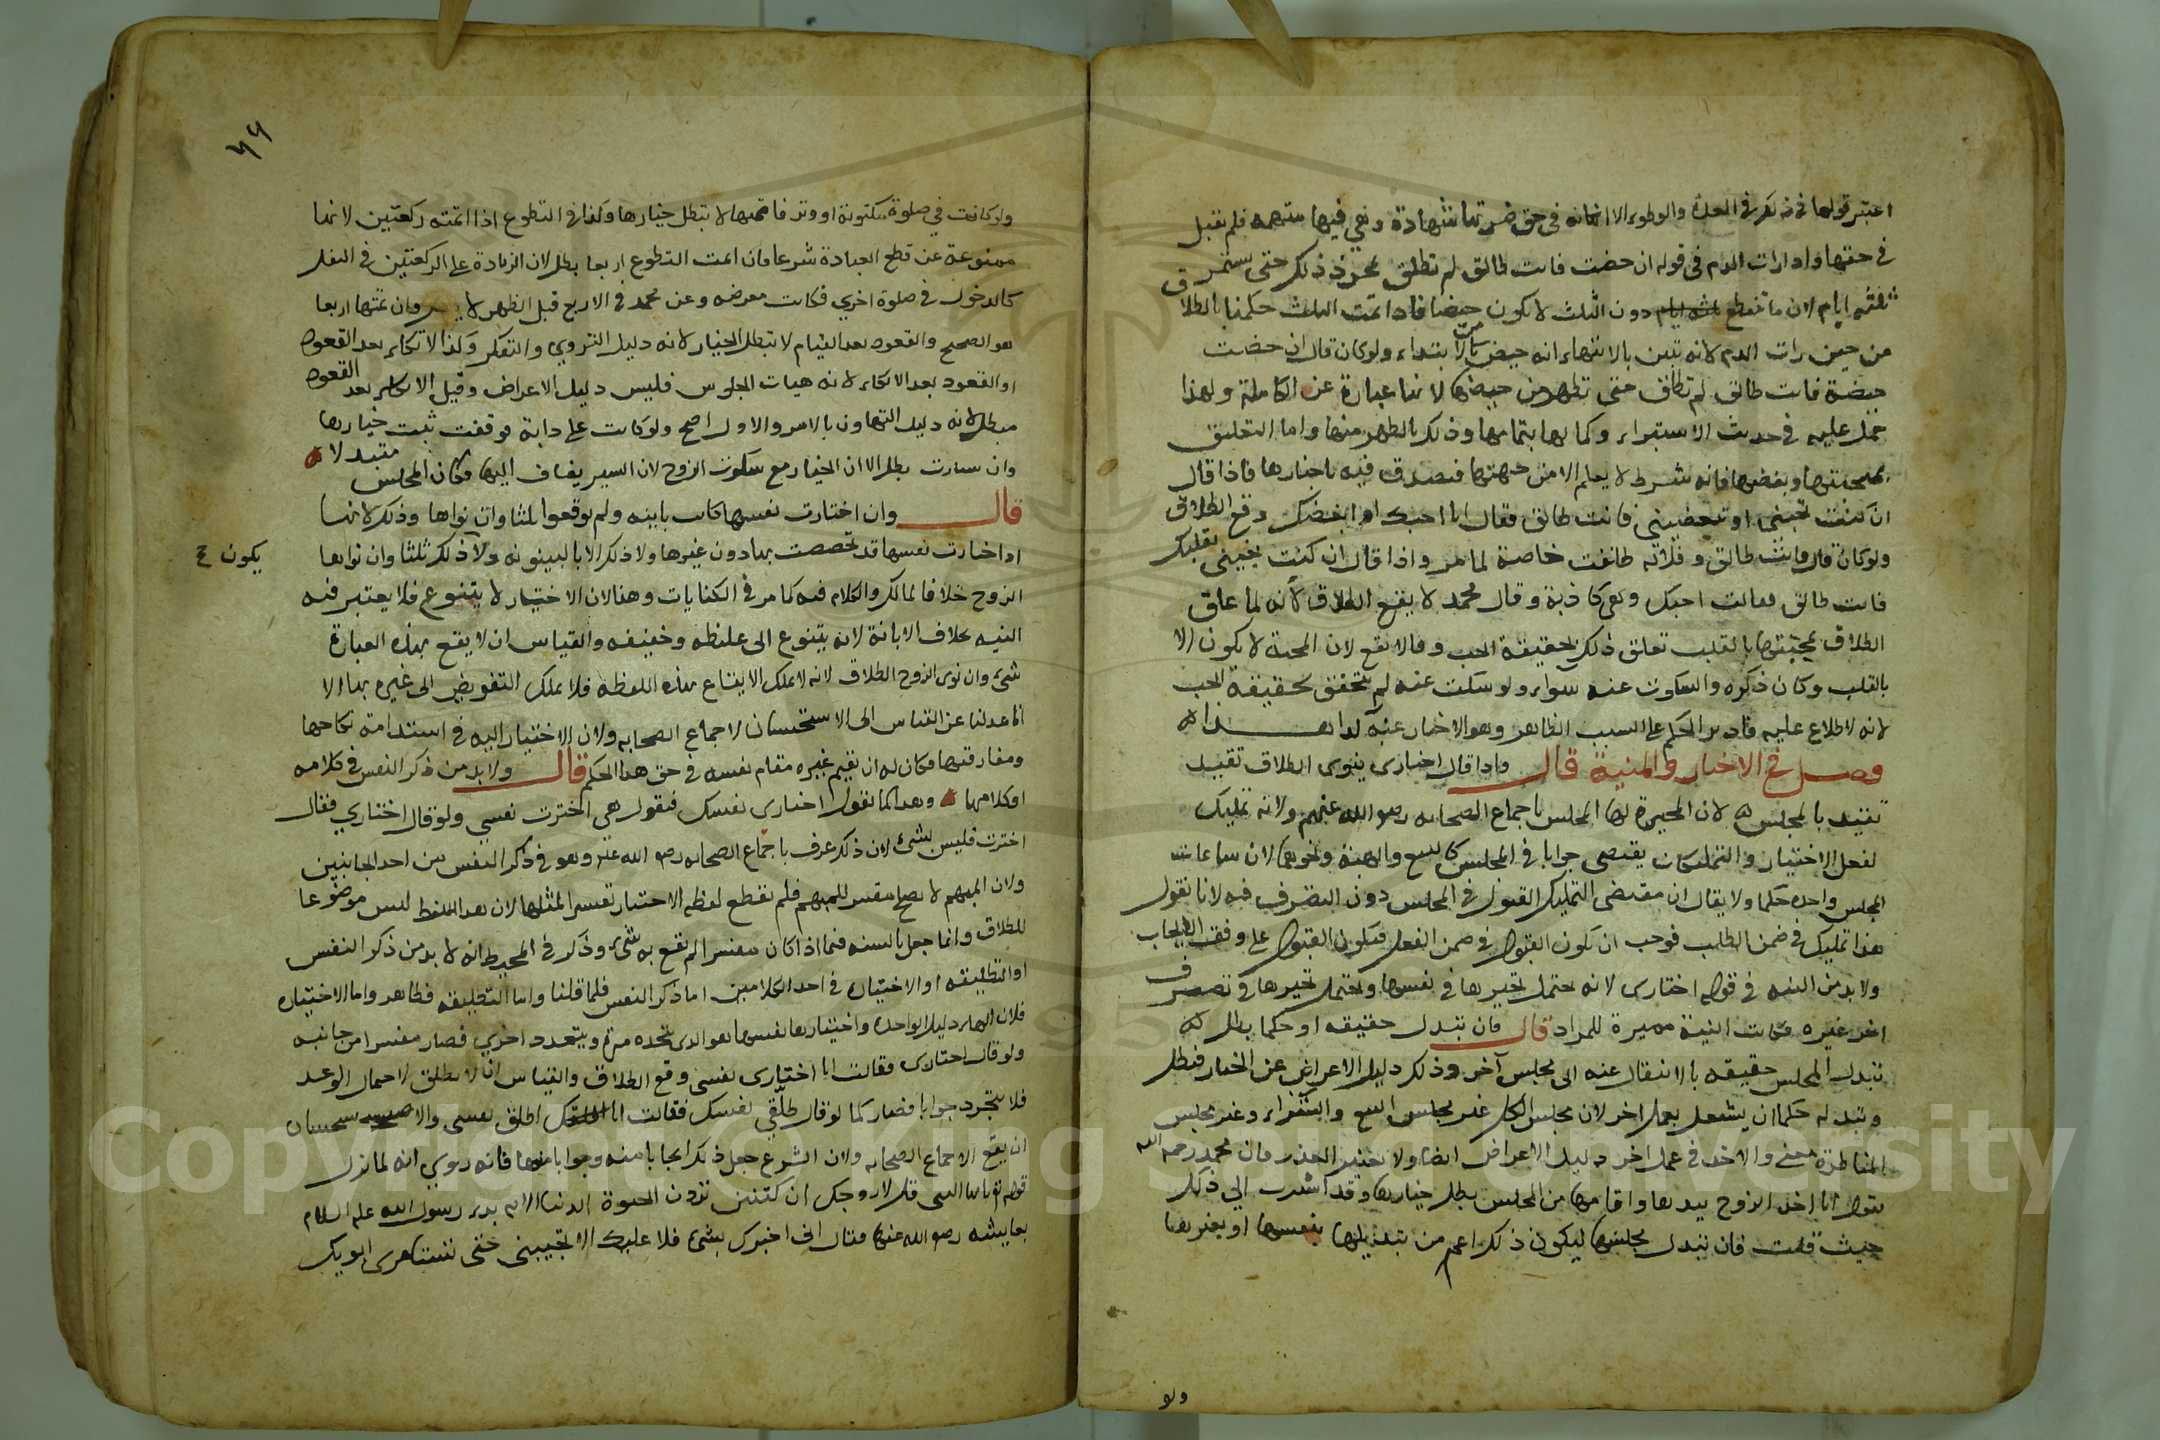 اعتبر قولها في العدة والوطء الا انه في حق ضرتها شهادة وهي فيها متهمة فلم تقبل
في حقها واذا رات الدم في قوله ان حضت فانت طالق لم تطلق بمجرد ذلك حتى يستمر
ثلثة ايام لان ما ينقطع دون الثلث لا يكون حيضا فاذا تمت الثلث حكمنا بالطلاق
من حين رات الدم لانه تبين بالانتهاء انه حيض من الابتداء ولو كان قال ان حضت
حيضة فانت طالق لم تطلق حتى تطهر من حيضها لانها عبارة عن الكاملة ولهذا
حمل عليه في حديث الاستبراء وكمالها بتمامها وذلك بالطهر منها واما التعليق
بمحبتها وبغضها فانه شرط لا يعلم الا من جهتها فتصدق فيه باخبارها فاذا قال
ان كنت تحبيني او تبغضيني فانت طالق فقال انا احبك او ابغضك وقع الطلاق
ولو كان قال فانت طالق وفلانة طلقت خاصة لما مر واذا قال ان كنت تحبيني بقلبك
فانت طالق فقالت احبك وهي كاذبة وقال محمد لا يقع الطلاق لانه لما علق
الطلاق بمحبتها بالقلب تعلق ذلك بحقيقة الحب وقالا يقع لان المحبة لا يكون الا
بالقلب وكان ذكره والسكوت عنه سواء ولو سكت عنه لم يتحقق بحقيقة الحب
لانه لا اطلاع عليه فادير الحكم على السبب الظاهر وهو الاخبار عنه كذا هذا
فصل في الاختيار والمشية قال واذا قال اختاري ينوي الطلاق تقيد
تقيد بالمجلس لان المخيرة لها المجلس باجماع الصحابه رضي الله عنهم ولانه تمليك
لفعل الاختيار والتمليكات يقتضي جوابا في المجلس كالبيع والهبة ونحوها لان ساعات
المجلس واحده حكما ولا يقال ان مقتضى التمليك القبول في المجلس دون التصرف فيه لانا نقول
هذا تمليك في ضمن الطلب فوجب ان يكون القبول في ضمن الفعل فيكون القبول على وفق الايجاب
ولا بد من النيه في قوله اختاري لانه يحتمل تخييرها في نفسها ويحتمل تخييرها في تصرف
اخر غيره فكانت النية مميزة للمراد قال فان تبدل حقيقه او حكما بطل لان
تبدل المجلس حقيقه بالانتقال عنه الى مجلس آخر وذلك دليل الاعراض عن الخيار فبطل
وتبدله حكما ان يشتغل بعمل اخر لان مجلس الاكل غير مجلس البيع والشراء وغير مجلس
المناظرة معنى والاخذ في عمل اخر دليل الاعراض ايضا ولا يعتبر العذر فان محمد رحمه الله
يقول اذا اخذ الزوج بيدها واقامها من المجلس بطل خيارها وقد اشرت الى ذلك
حيث قلت فان تبدل مجلسها ليكون ذلك اعم من تبديلها بنفسها او بغيرها
ولو
٥٦
ولو كانت في صلوة مكتوبة او وتر فاتمتها لا تبطل خيارها وكذا في التطوع اذا اتمته ركعتين لانها
ممنوعة عن قطع العبادة شرعا فان اتمت التطوع اربعا بطل لان الزيادة على الركعتين في النفل
كالدخول في صلوة اخرى فكانت معرضه وعن محمد في الاربع قبل الظهر لا وان تمتها اربعا
هو الصحيح والقعود بعد القيام لا تبطل الخيار لانه دليل التروي والتفكر وكذا الاتكاء بعد القعود
او القعود بعد الاتكاء لانه هيات الجلوس فليس دليل الاعراض وقيل الاتكاء بعد القعود
مبطل لانه دليل التهاون بالامر والاول اصح ولو كانت على دابة فوقفت ثبت خيارها
وان سارت بطل الا ان الخيار مع سكوت الزوج لان السير يضاف اليها فكان المجلس متبدلا
قال وان اختارت نفسها كانت باينه ولم يوقعوا ثلثا وان نواها وذلك لانها
اذا اختارت نفسها قد تخصصت بها دون غيرها ولا ذلك الا بالبينونه ولا ذلك ثلثا وان نواها
يكون ح
الزوج خلافا لمالك والكلام فيه كما مر في الكنايات وهذا لان الاختيار لا يتنوع فلا يعتبر فيه
النيه بخلاف الابانة لانه يتنوع الى غليظه وخفيفه والقياس ان لا يقع بهذه العبارة
شيء وان نوى الزوج الطلاق لانه لا يملك الايقاع بهذه اللفظة فلا يملك التفويض الى غيره بها الا
انا عدلنا عن القياس الى الاستحسان لاجماع الصحابه ولان الاختيار اليه في استدامة نكاحها
ومفارقتها فكان له ان يقيم غيره مقام نفسه في حق هذا الحكم قال ولا بد من ذكر النفس في كلامه
او كلامها وهذا كما نقول اختاري نفسك فتقول هي اخترت نفسي ولو قال اختاري فقال
اخترت فليس بشيء لان ذلك عرف باجماع الصحابه رضي الله عنه وهو في ذكر النفس من احد الجانبين
ولان المبهم لا يصلح مفسرا للمبهم فلم تقطع لفظه الاختيار تفسيرا لمثلها لان هذا اللفظ ليس موضوعا
للطلاق وانما جعل بالسنه فيما اذا كان مفسرا لم يقع به شيء وذكر في المحيط انه لا بد من ذكر النفس
او التطليقه او الاختياره في احد الكلامين اما ذكر النفس فلما قلنا واما التطليقه فظاهر واما الاختياره
فلان الهاء دليل الواحده واختيارها نفسها هو الذي يتحد مرة ويتعدد اخرى فصار مفسرا من جانبه
ولو قال اختاري فقالت انا اختاري نفسي وقع الطلاق والقياس ان لا يطلق لاحتمال الوعد
فلا يتجرد جوابا فصار كما لو قال طلقي نفسك فقالت انا اطلق نفسي والاستحسان
ان يقع لاجماع الصحابه ولان الشرع جعل ذلك ايجابا منه وجوابا منها فانه روي انه لما نزل
قوله تعالى يا ايها النبي قل لازواجك ان كنتن تردن الحيوة الدنيا الايه بدء رسول الله عليه السلام
بعايشه رضي الله عنها فقال اني اخبرك بشيء فلا عليك الا تجيبيني حتى تستامري ابويك